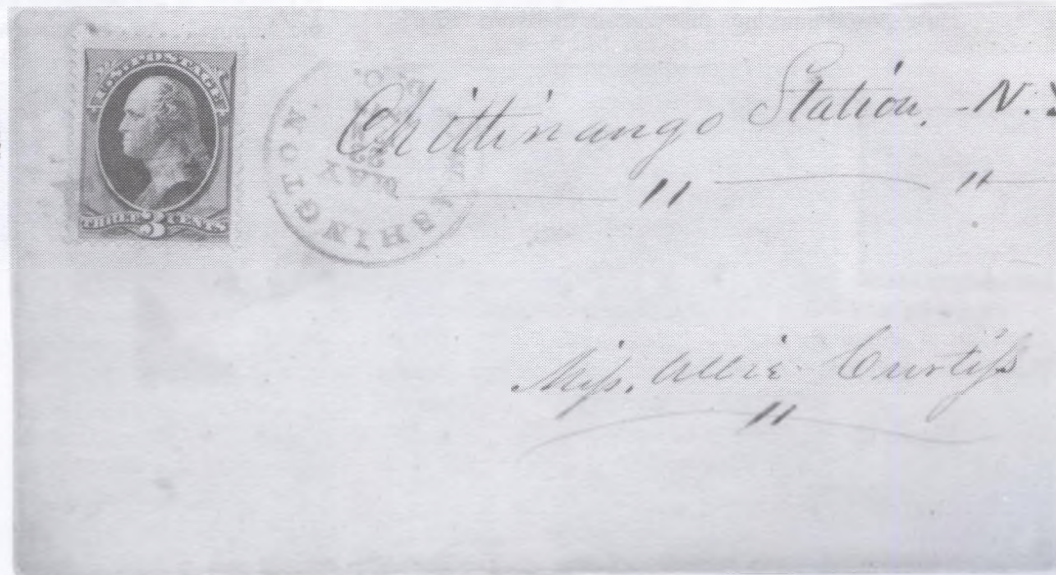 U.S. POSTAGE
THREE 3 CENTS
WASHINGTON
MAY
22
Chittinango Station, N.Y
" "
Miss. Allie Curtiss
"